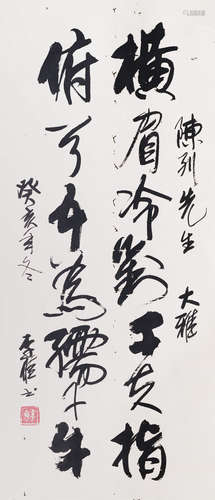 陳列先生 大雅
橫眉冷對千夫指
俯首甘為孺子牛
癸亥年冬
书